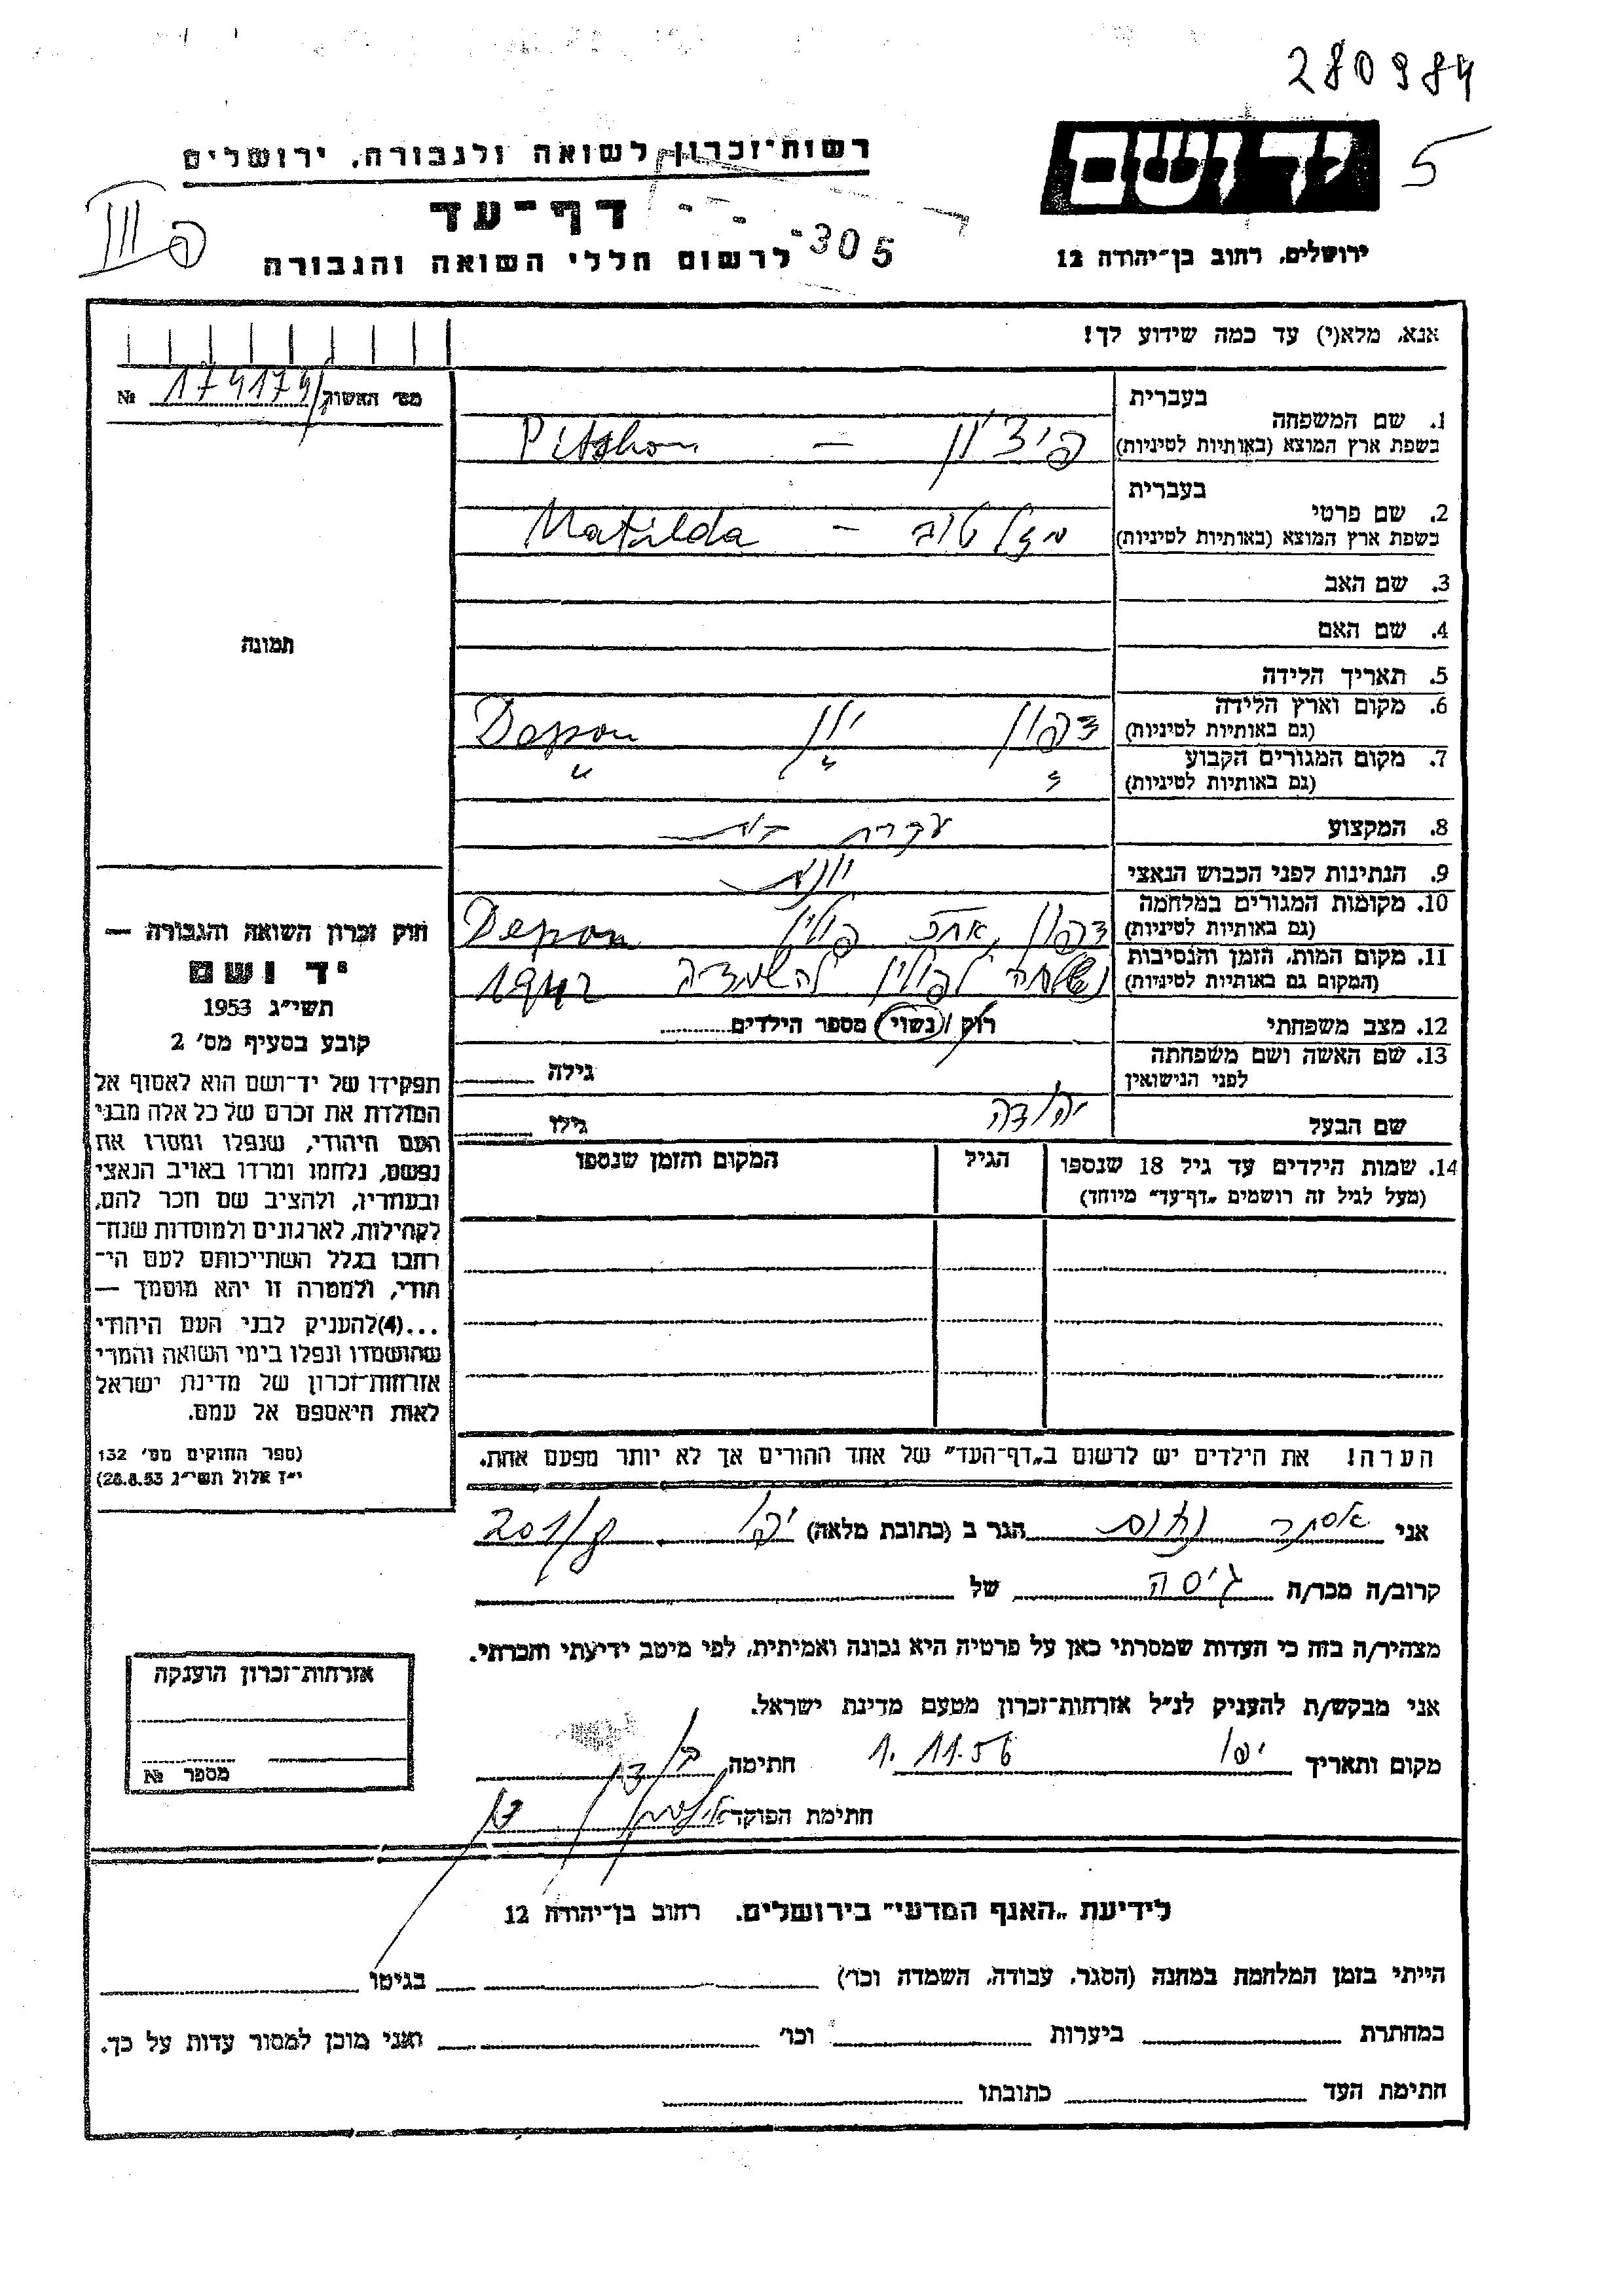 280984
5
יד ושם
ירושלים, רחוב בן־יהודה 12
רשות־זכרון לשואה ולגבורה, ירושלים
דף־עד
305
לרשום חללי השואה והגבורה
פ III
אנא, מלא(י) עד כמה שידוע לך!
מס׳ האשור 174174 №
תמונה
1. שם המשפחה בעברית
בשפת ארץ המוצא (באותיות לטיניות)
פיצ׳ון — Pitshon
2. שם פרטי בעברית
בשפת ארץ המוצא (באותיות לטיניות)
מזל טוב — Matilda
3. שם האב
4. שם האם
5. תאריך הלידה
6. מקום וארץ הלידה
(גם באותיות לטיניות)
יון Depon
7. מקום המגורים הקבוע
(גם באותיות לטיניות)
" " "
8. המקצוע עקרת בית
9. הנתינות לפני הכבוש הנאצי יונית
10. מקומות המגורים במלחמה
(גם באותיות לטיניות)
פולין Depon
11. מקום המות, הזמן והנסיבות
(המקום גם באותיות לטיניות)
נשלחה לפולין להשמדה 1942
12. מצב משפחתי רוק / נשוי מספר הילדים
13. שם האשה ושם משפחתה
לפני הנישואין
גילה
שם הבעל יהודה גילו
14. שמות הילדים עד גיל 18 שנספו הגיל המקום והזמן שנספו
(מעל לגיל זה רושמים „דף־עד” מיוחד)
חוק זכרון השואה והגבורה —
יד ושם
תשי״ג 1953
קובע בסעיף מס׳ 2
תפקידו של יד־ושם הוא לאסוף אל
המולדת את זכרם של כל אלה מבני
העם היהודי, שנפלו ומסרו את
נפשם, נלחמו ומרדו באויב הנאצי
ובעוזריו, ולהציב שם וזכר להם,
לקהילות, לארגונים ולמוסדות שנח־
רבו בגלל השתייכותם לעם הי־
הודי, ולמטרה זו יהא מוסמך —
...(4)להעניק לבני העם היהודי
שהושמדו ונפלו בימי השואה והמרי
אזרחות־זכרון של מדינת ישראל
לאות היאספם אל עמם.
(ספר החוקים מס׳ 132
י״ז אלול תשי״ג 28.8.53)
הערה! את הילדים יש לרשום ב„דף־העד” של אחד ההורים אך לא יותר מפעם אחת.
אני אסתר נחום הגר ב (כתובת מלאה) יפו
קרוב/ה מכר/ה גיסה של
מצהיר/ה בזה כי העדות שמסרתי כאן על פרטיה היא נכונה ואמיתית, לפי מיטב ידיעתי והכרתי.
אני מבקש/ת להעניק לנ״ל אזרחות־זכרון מטעם מדינת ישראל.
מקום ותאריך יפו 1.11.56 חתימה
חתימת הפוקד
אזרחות־זכרון הוענקה
מספר №
לידיעת „האגף המדעי” בירושלים. רחוב בן־יהודה 12
הייתי בזמן המלחמה במחנה (הסגר, עבודה, השמדה וכו׳) בגיטו
במחתרת ביערות וכו׳ ואני מוכן למסור עדות על כך.
חתימת העד כתובתו